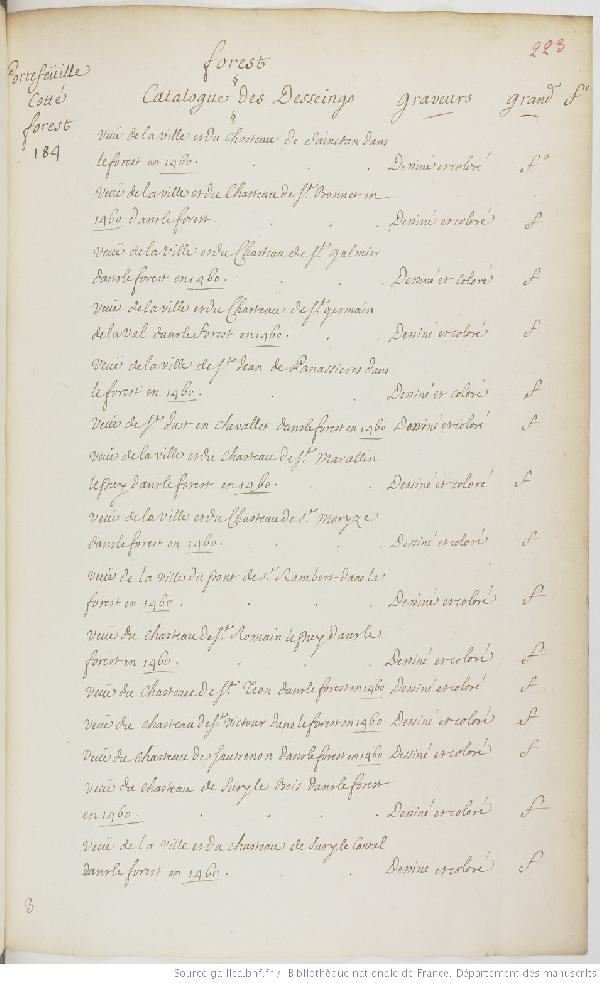 223
forest
Portefeüille
Cotté
forest
184
Catalogue des Desseings graveurs grand fo
veüe de la ville et du Chasteau de Sainctan dans
le forest en 1460. Dessiné et coloré fo
veüe de la ville et du Chasteau de St. Bonnet en
1460 dans le forest Dessiné et coloré f
veüe de la Ville et du Chasteau de St. galmier
dans le forest en 1460. Dessiné et coloré f
veüe de la ville et du Chasteau de St. germain
de la Val dans le forest en 1460. Dessiné et coloré f
veüe de la ville de St. Jean de Panassieres dans
le forest en 1460. Dessiné et coloré f
veüe de St. Just en chevallet dans le forest en 1460 Dessiné et coloré f
veüe de la ville et du Chasteau de St. Marcellin
le puy dans le forest en 1460. Dessiné et coloré f
veüe de la ville et du Chasteau de St. Moryze
dans le forest en 1460. Dessiné et coloré f
veüe de la ville du pont de St. Rambert dans le
forest en 1460. Dessiné et coloré f
veüe du chasteau de St. Romain le puy dans le
forest en 1460. Dessiné et coloré f
veüe du Chasteau de St. dans le forest en 1460 Dessiné et coloré f
veüe du chasteau de St. Victour dans le forest en 1460 Dessiné et coloré f
veüe du Chasteau de Sautrenon dans le forest en 1460 Dessiné et coloré f
veüe du chasteau de Sury le Bois dans le forest
en 1460. Dessiné et coloré f
veüe de la ville et du chasteau de Sury le Contal
dans le forest en 1460. Dessiné et coloré f
3
Source gallica.bnf.fr / Bibliothèque nationale de France. Département des manuscrits